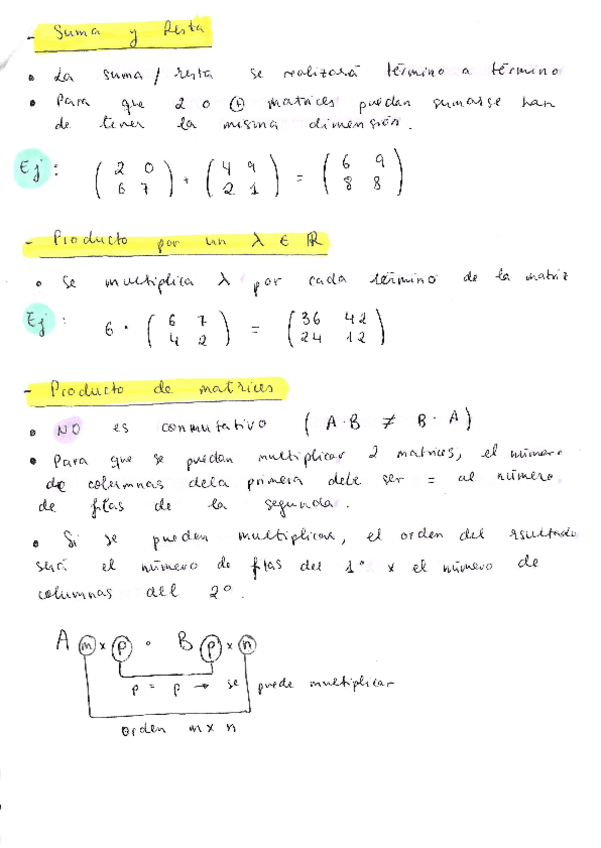 - Suma y Resta
• La suma / resta se realizará término a término
• Para que 2 o ⊕ matrices puedan sumarse han
de tener la misma dimensión.
Ej: (2 0 / 6 7) + (4 9 / 2 1) = (6 9 / 8 8)
- Producto por un λ ∈ ℝ
• Se multiplica λ por cada término de la matriz
Ej: 6 · (6 7 / 4 2) = (36 42 / 24 12)
- Producto de matrices
• NO es conmutativo (A·B ≠ B·A)
• Para que se puedan multiplicar 2 matrices, el número
de columnas de la primera debe ser = al número
de filas de la segunda.
• Si se pueden multiplicar, el orden del resultado
será el número de filas del 1º x el número de
columnas del 2º.
A m x p · B p x n
p = p → se puede multiplicar
orden m x n